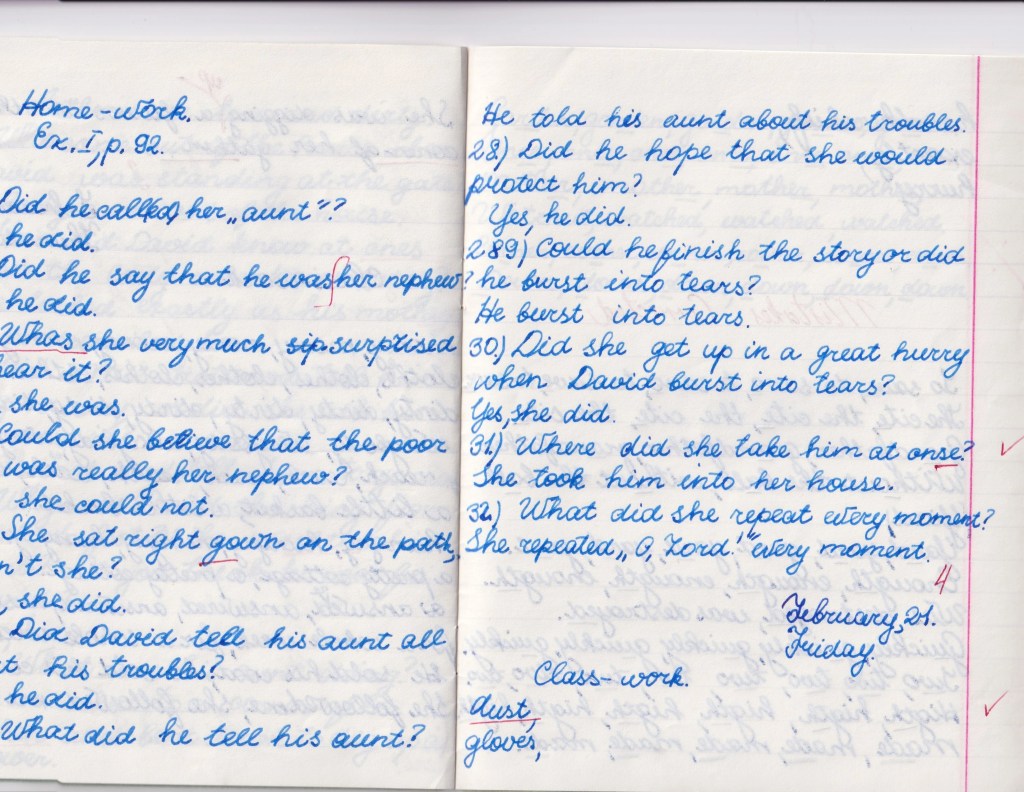 Home-work.
Ex. I, p. 92.
Did he call(ed) her „aunt"?
he did.
Did he say that he was her nephew?
he did.
Whas she very much sip surprised
hear it?
she was.
Could she believe that the poor
was really her nephew?
she could not.
She sat right gown on the path,
n't she?
, she did.
Did David tell his aunt all
t his troubles?
he did.
What did he tell his aunt?
He told his aunt about his troubles.
28.) Did he hope that she would
protect him?
Yes, he did.
289) Could he finish the story or did
he burst into tears?
He burst into tears.
30.) Did she get up in a great hurry
when David burst into tears?
Yes, she did.
31.) Where did she take him at onse?
She took him into her house.
32.) What did she repeat every moment?
She repeated „O, Lord!" every moment.
4
February, 21.
Friday.
Class-work.
dust,
gloves,